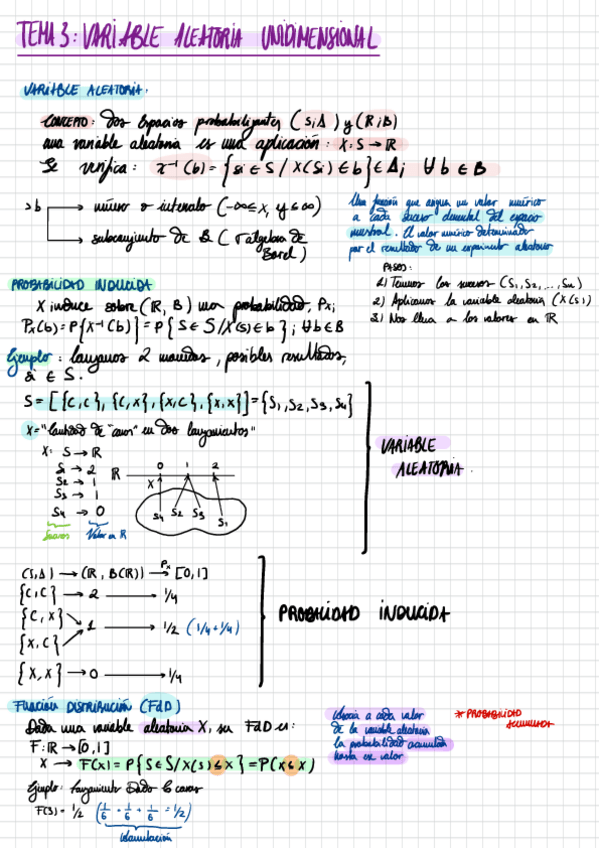 TEMA 3: VARIABLE ALEATORIA UNIDIMENSIONAL
VARIABLE ALEATORIA.
CONCEPTO: dos Espacios probabilizantes (S,Δ) y (R,B)
una variable aleatoria es una aplicación: X: S → R
Se verifica: x⁻¹(b) = {si ∈ S / X(Si) ∈ b} ∈ Δ; ∀ b ∈ B
→ b
número o intervalo (-∞≤x, y≤∞)
subconjunto de B (σ álgebra de Borel)
Una función que asigna un valor numérico
a cada suceso elemental del espacio
muestral. El valor numérico determinado
por el resultado de un experimento aleatorio
PASOS:
1) Tenemos los sucesos (S1, S2, ..., Sn)
2) Aplicamos la variable aleatoria (X(S))
3) Nos lleva a los valores en R
PROBABILIDAD INDUCIDA
X induce sobre (R, B) una probabilidad, Px;
Px(b) = P{X⁻¹(b)} = P{S ∈ S/X(s) ∈ b}; ∀b∈B
Ejemplo: lanzamos 2 monedas, posibles resultados,
∈ S.
S = [{C,C}, {C,X}, {X,C}, {X,X}] = {S1, S2, S3, S4}
X = "Cantidad de "caras" en dos lanzamientos"
X: S → R
S1 → 2
S2 → 1
S3 → 1
S4 → 0
Sucesos Valor en R
R 0 1 2
X
S4 S2 S3 S1
VARIABLE
ALEATORIA.
(S,Δ) → (R, B(R)) →Px [0,1]
{C,C} → 2 → 1/4
{C,X}
1 → 1/2 (1/4+1/4)
{X,C}
{X,X} → 0 → 1/4
PROBALIDAD INDUCIDA
FUNCIÓN DISTRIBUCIÓN (FdD)
Dada una variable aleatoria X, su FdD es:
F: R → [0,1]
X → F(x) = P{S ∈ S/X(s) ≤ x} = P(X ≤ x)
Asocia a cada valor
de la variable aleatoria
la probabilidad acumulada
hasta ese valor
* PROBABILIDAD
ACUMULADA
Ejemplo: Lanzamiento Dado 6 caras
F(3) = 1/2 (1/6 + 1/6 + 1/6 = 1/2)
acumulación